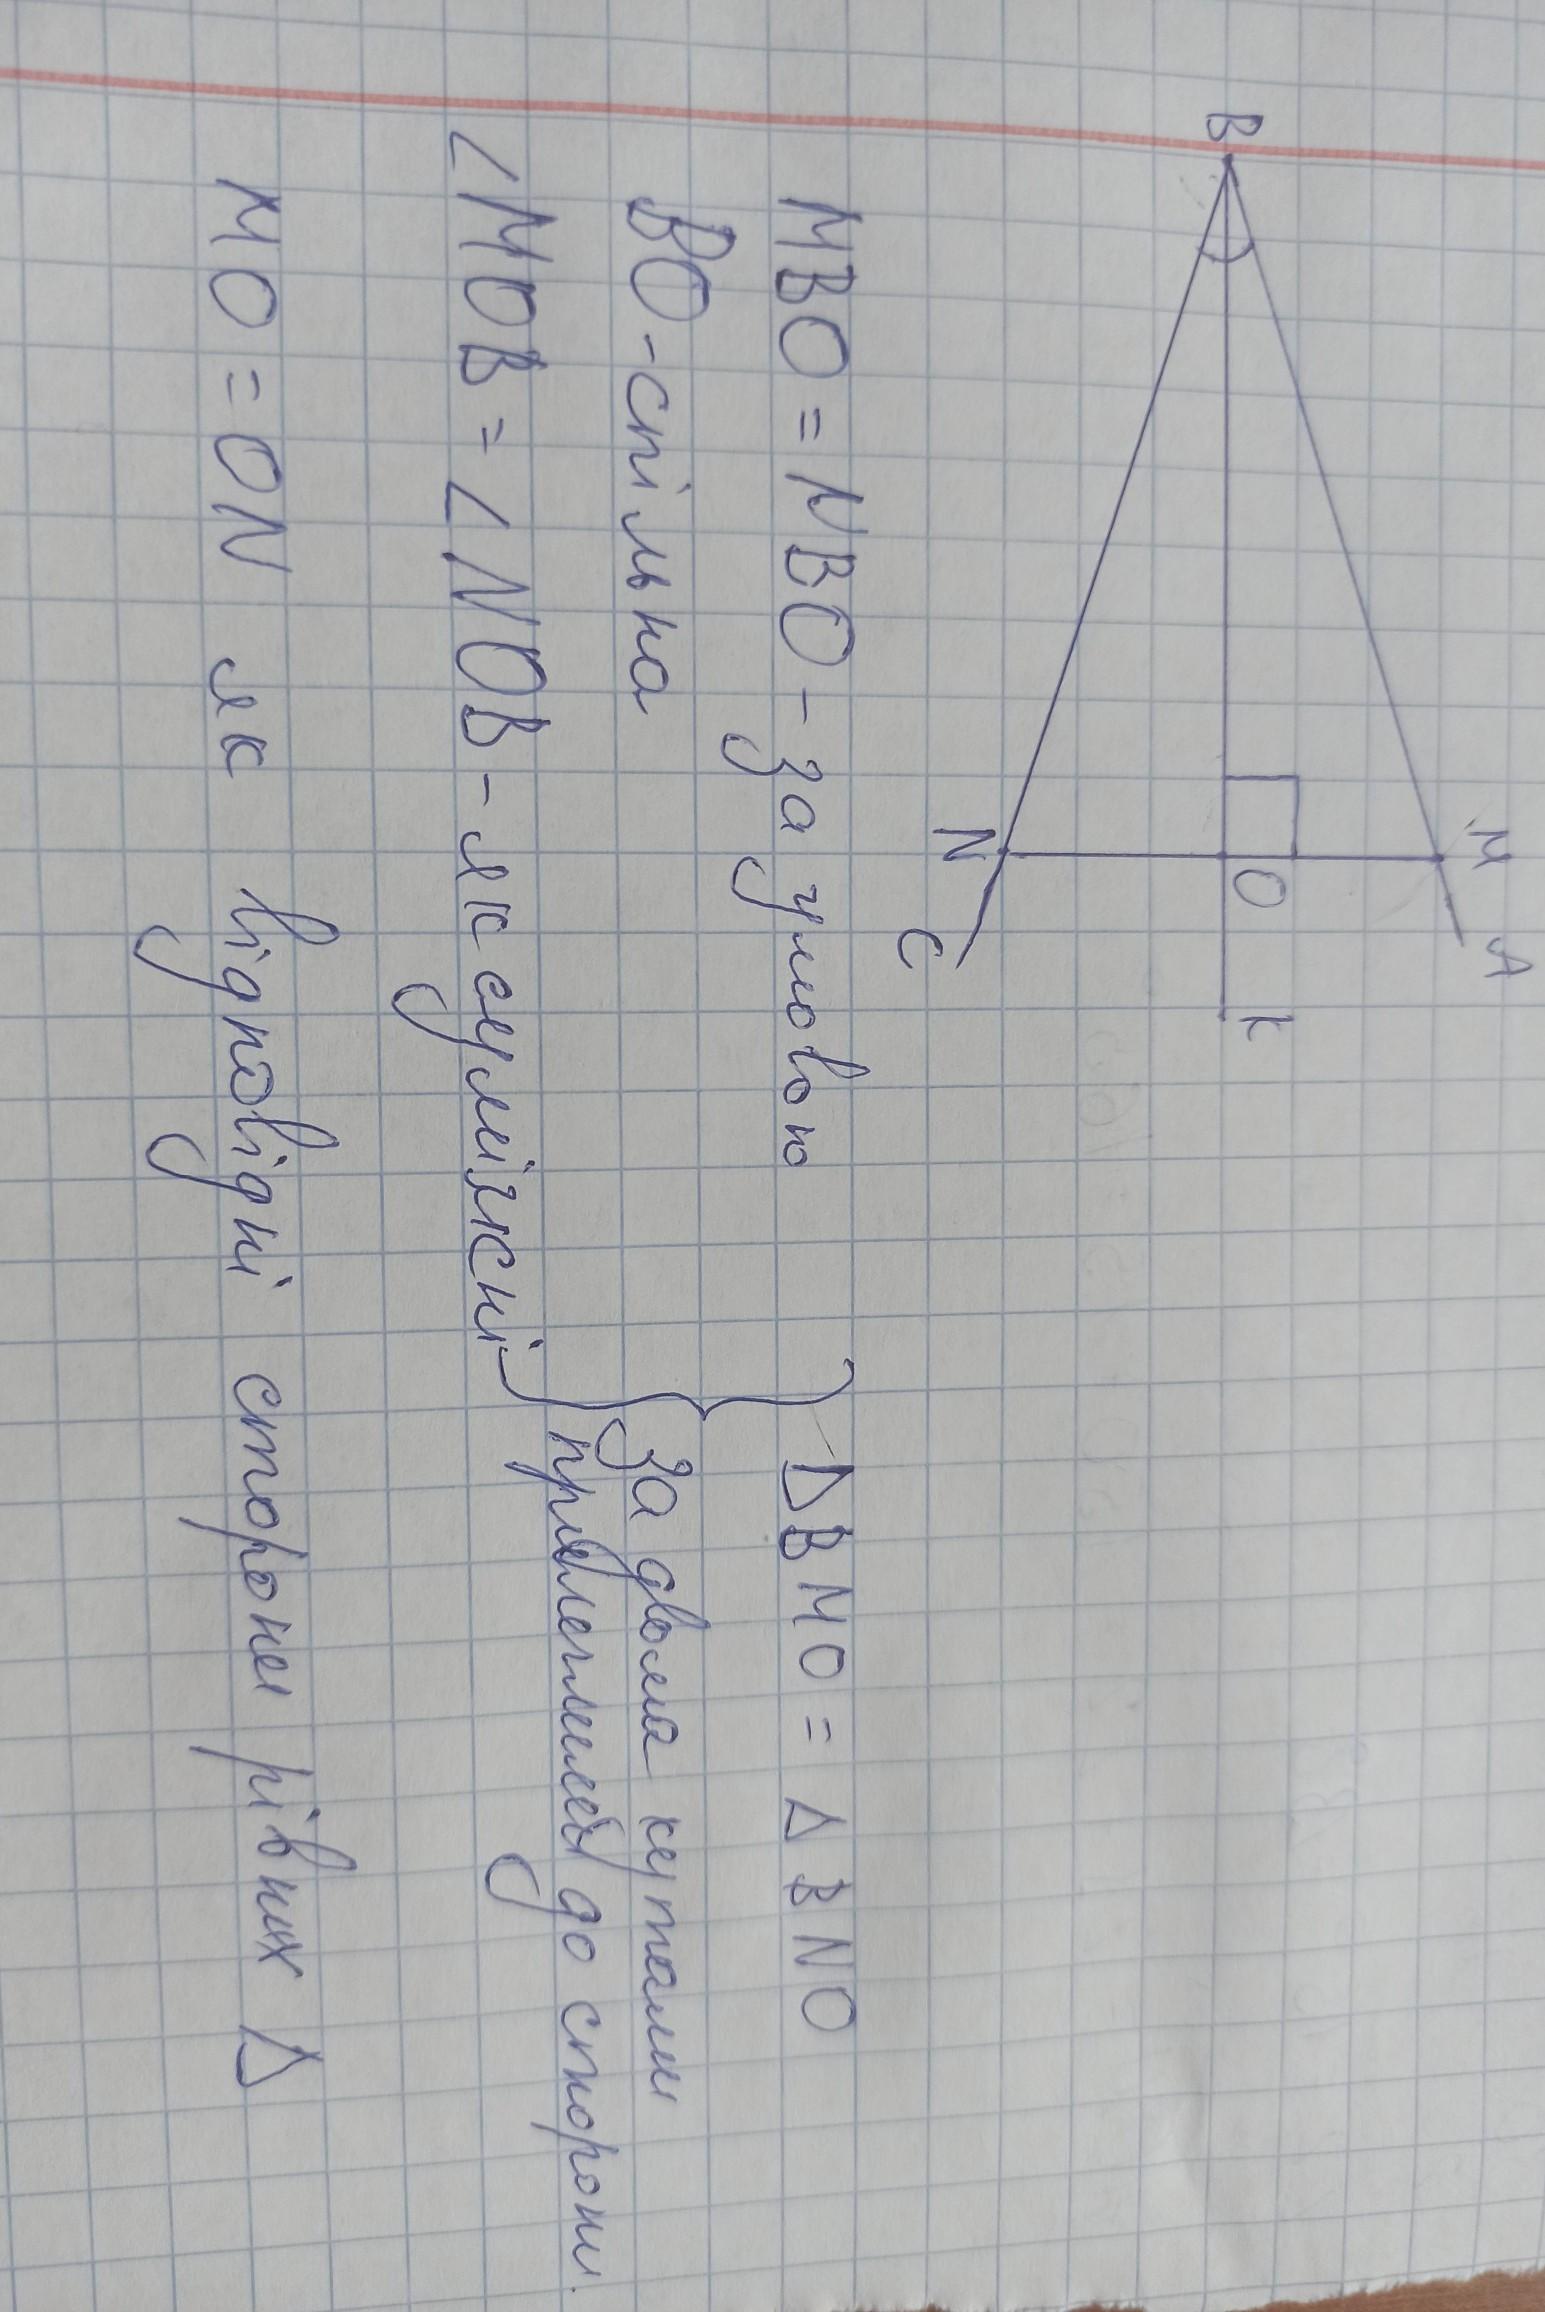 B
M
A
O
K
N
C
MBO = NBO - за умовою
BO - спільна
∠MOB = ∠NOB - як суміжні
ΔBMO = ΔBNO
за двома кутами
прилеглими до сторони.
MO = ON як відповідні сторони рівних Δ